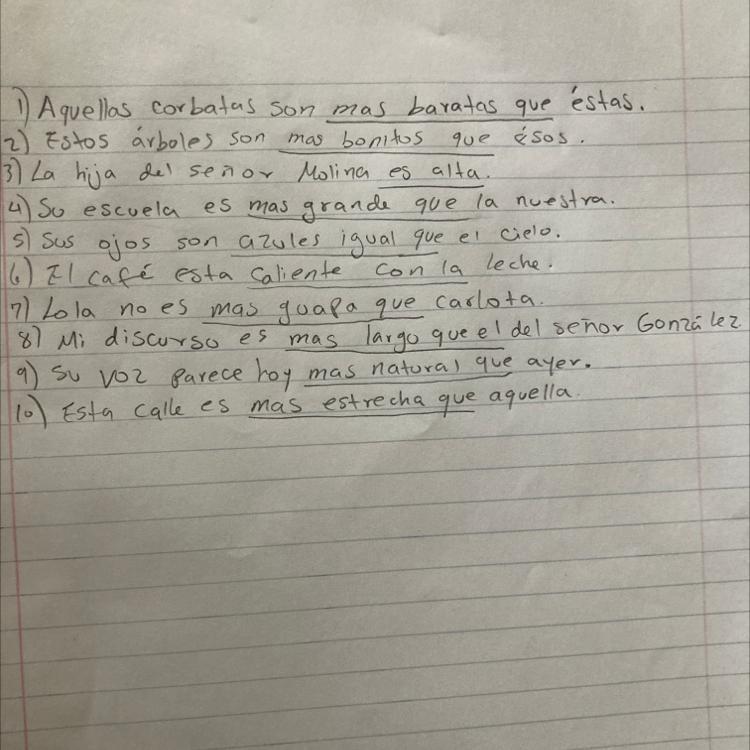 1) Aquellas corbatas son mas baratas que éstas.
2) Estos árboles son mas bonitos que ésos.
3) La hija del señor Molina es alta.
4) Su escuela es mas grande que la nuestra.
5) Sus ojos son azules igual que el cielo.
6) El café esta caliente con la leche.
7) Lola no es mas guapa que carlota.
8) Mi discurso es mas largo que el del señor González
9) Su voz parece hoy mas natural que ayer.
10) Esta calle es mas estrecha que aquella.